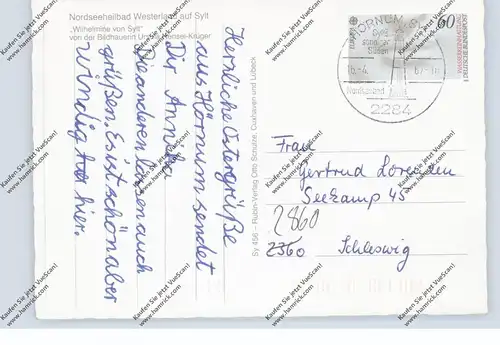 Nordseeheilbad Westerland auf Sylt
„Wilhelmine von Sylt"
von der Bildhauerin Ursula Hensel-Krüger
Herzliche Ostergrüße
aus Hörnum sendet
Dir Annika
Die anderen lassen auch
grüßen. Es ist schön aber
windig hier.
Sy 456 – Rubin-Verlag Otto Schulze, Cuxhaven und Lübeck
HÖRNUM, SYLT
-6.-4.
2284
EUROPA
60
DEUTSCHE BUNDESPOST
Frau
Gertrud Lorenzen
Seekamp 45
2860
2360 Schleswig
Kaufen Sie jetzt VueScan!
www.hamrick.com